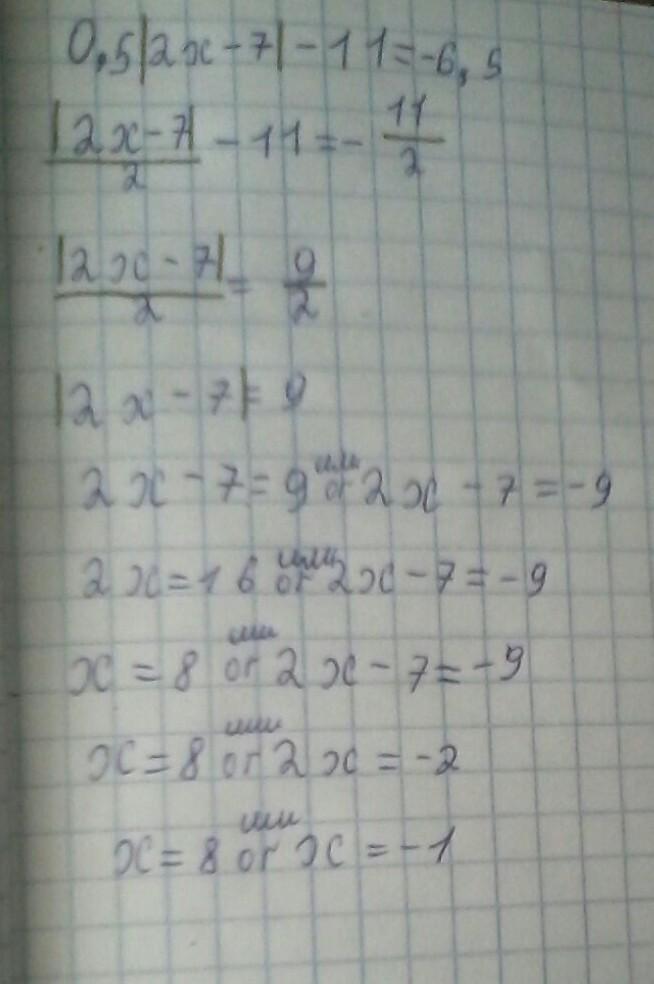 0,5|2x-7|-11=-6,5
|2x-7|/2 - 11 = - 11/2
|2x-7|/2 = 9/2
|2x-7|=9
2x-7=9 или or 2x-7=-9
2x=16 или or 2x-7=-9
x=8 или or 2x-7=-9
x=8 или or 2x=-2
x=8 или or x=-1